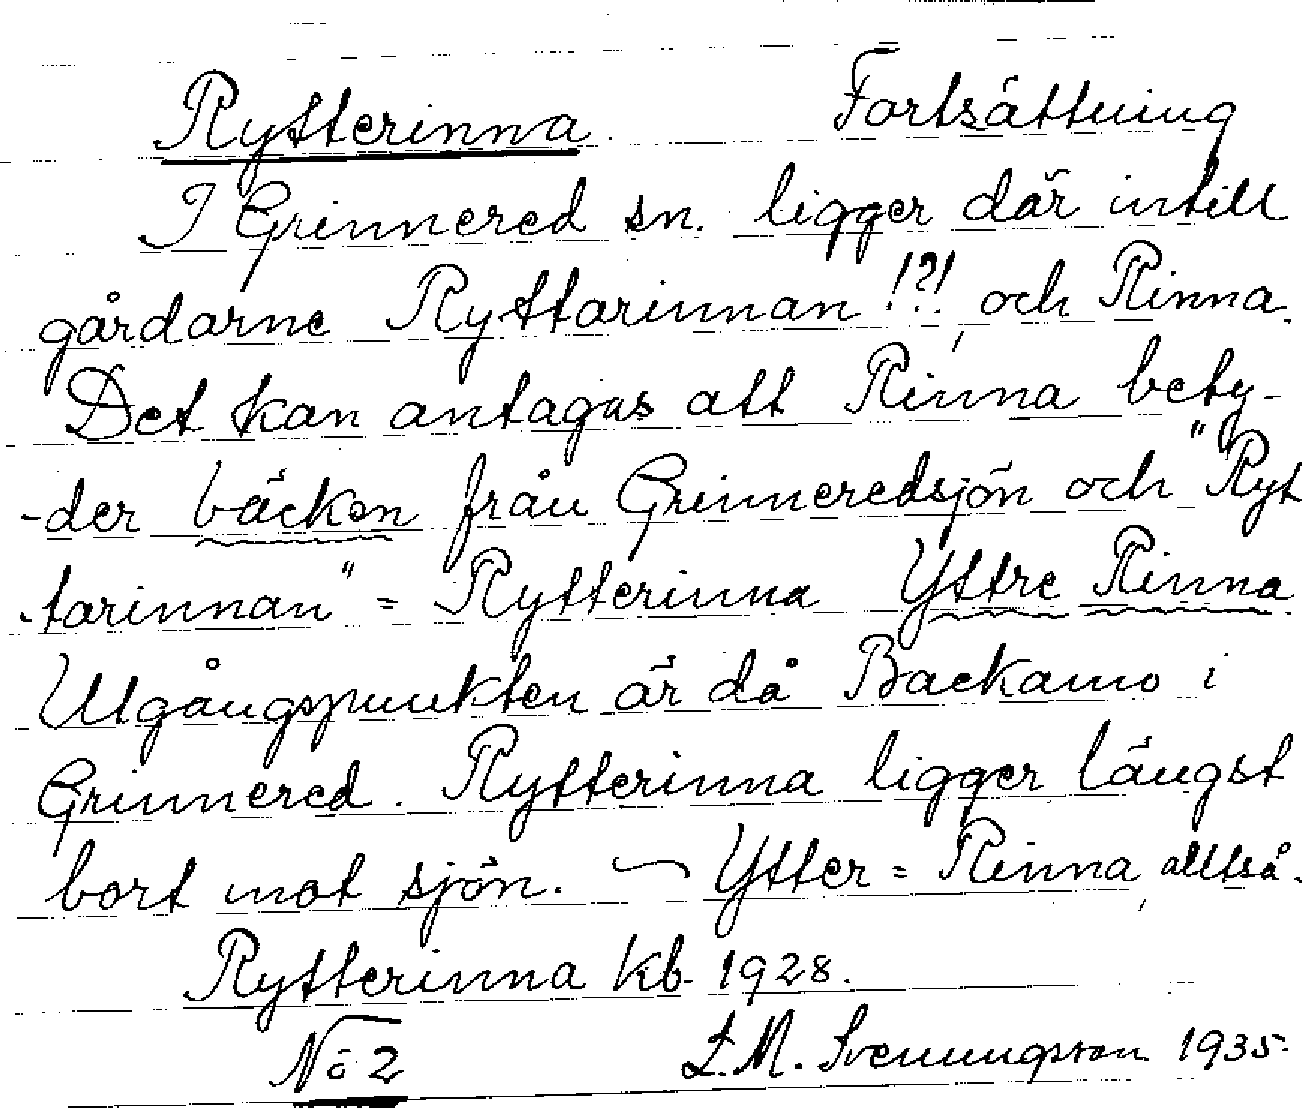 Rytterinna. Fortsättning
I Grinnered sn. ligger där intill
gårdarne Ryttarinnan!?!, och Rinna.
Det kan antagas att Rinna bety-
-der bäcken från Grinneredsjön och "Ryt
-tarinnan" = Rytterinna Yttre Rinna
Utgångspunkten är då Backamo i
Grinnered. Rytterinna ligger längst
bort mot sjön. — Ytter = Rinna, alltså.
Rytterinna kb. 1928.
No 2 L.M. Svenungsson 1935.